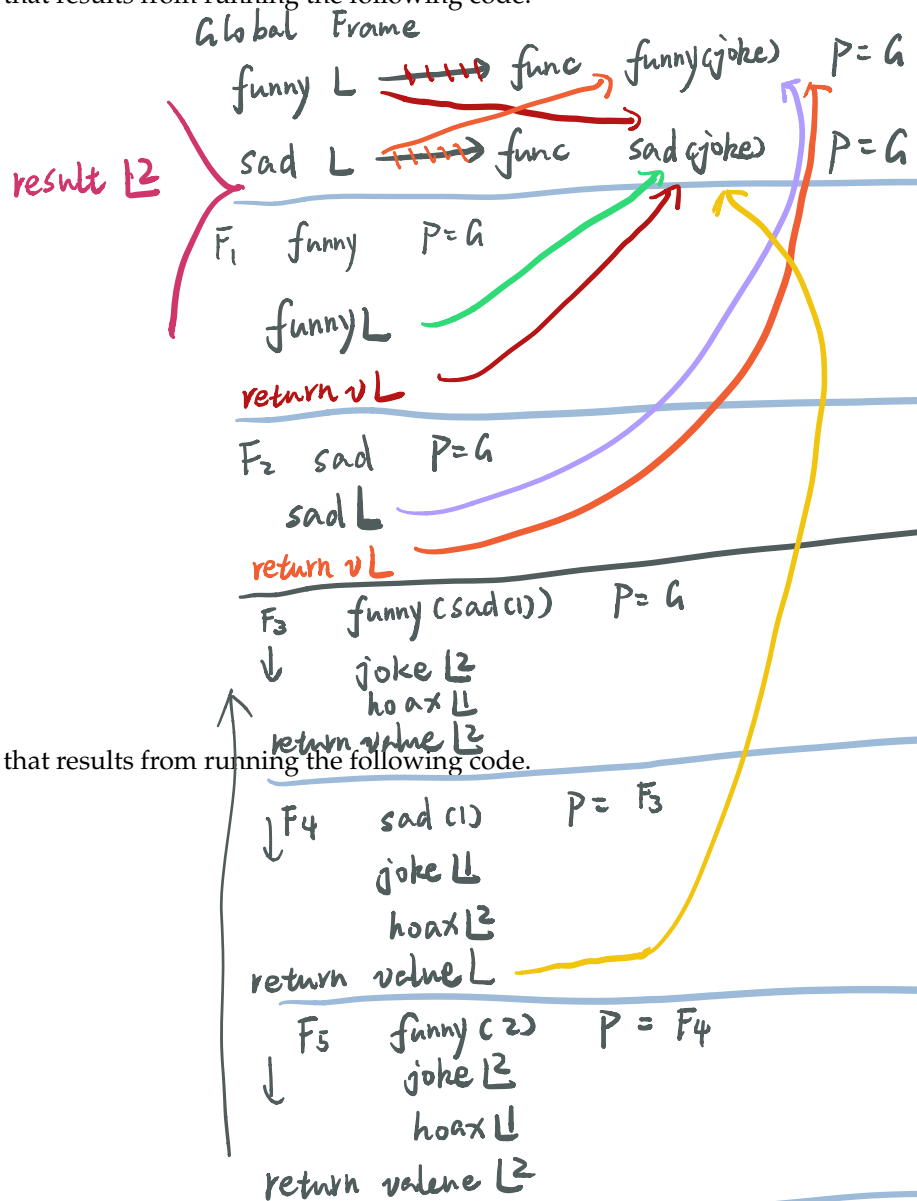 that results from running the following code.
Global Frame
funny L func funny(joke) P=G
sad L func sad(joke) P=G
result 2
F1 funny P=G
funny L
return v L
F2 sad P=G
sad L
return v L
F3 funny(sad(1)) P=G
joke 2
hoax 1
return value 2
that results from running the following code.
F4 sad(1) P= F3
joke 1
hoax 2
return value L
F5 funny(2) P = F4
joke 2
hoax 1
return valene 2